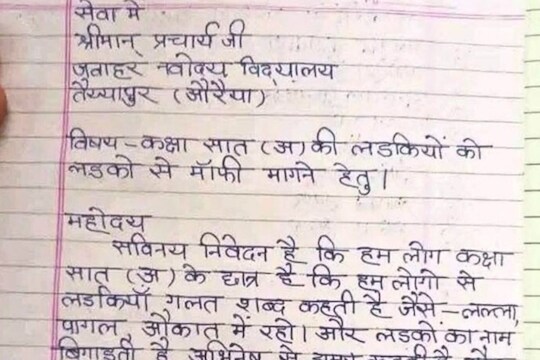 सेवा में
श्रीमान् प्रचार्य जी
जवाहर नवोदय विद्यालय
तैय्यापुर (औरैया)
विषय - कक्षा सात (अ) की लडकियों को
लडको से मॉफी मागने हेतु।
महोदय
सविनय निवेदन है कि हम लोग कक्षा
सात (अ) के छात्र है कि हम लोगो से
लडकियाँ गलत शब्द कहती है जैसे - लल्ला,
पागल, औकात में रहो। और लडकों का नाम
बिगाडती है